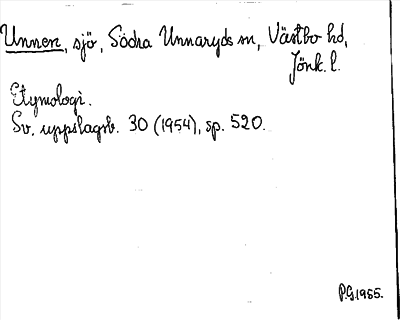 Unnen, sjö, Södra Unnaryds sn, Västbo hd,
Jönk. l.
Etymologi.
Sv. uppslagsb. 30 (1954), sp. 520.
P.G. 1955.